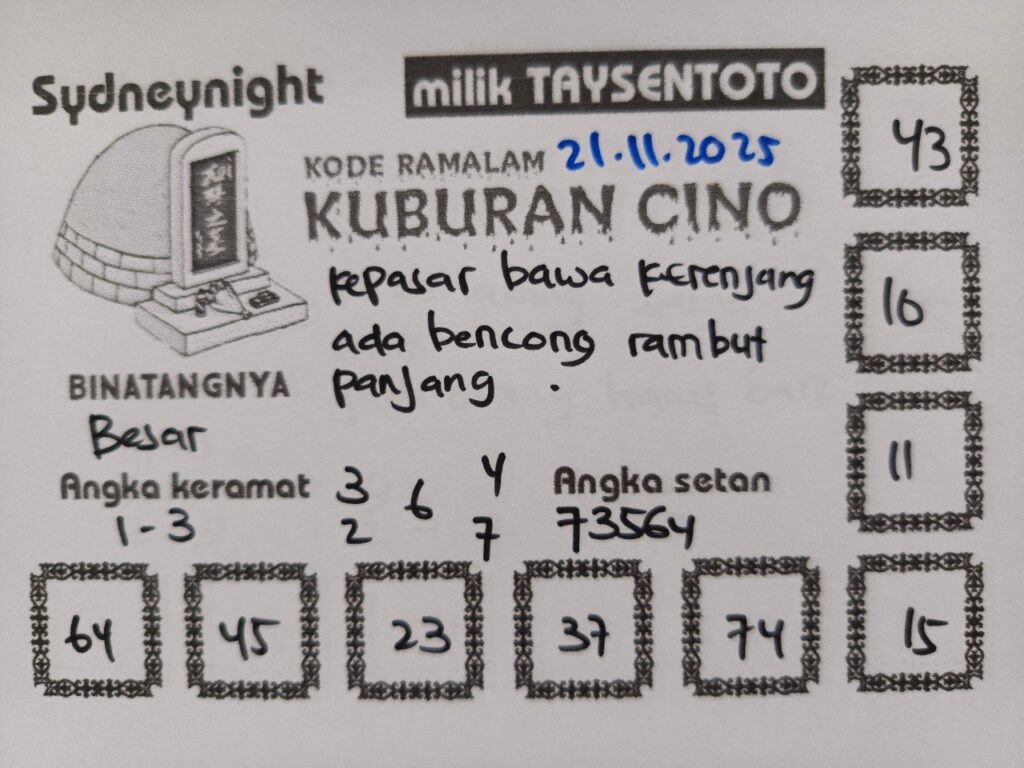 Sydneynight
milik TAYSENTOTO
KODE RAMALAM 21.11.2025
KUBURAN CINO
kepasar bawa kerenjang
ada bencong rambut
panjang .
BINATANGNYA
Besar
Angka keramat
1-3
3 6 4
2 7
Angka setan
73564
43
10
11
15
64 45 23 37 74